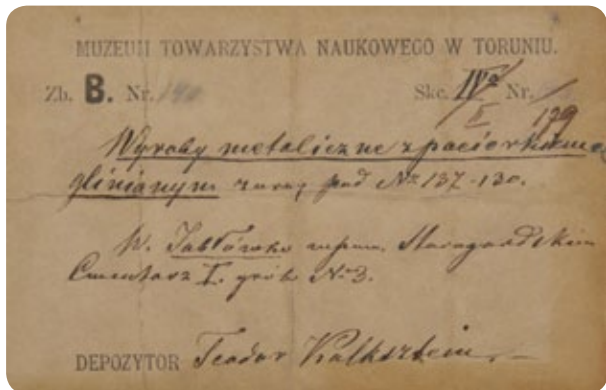 MUZEUM TOWARZYSTWA NAUKOWEGO W TORUNIU.
Zb. B. Nr. 140 Skc. IVa Nr.
II 129
Wyroby metaliczne z paciorkiem
glinianym razem pod Nr 137-130.
W. Jabłówko Starogardskim
Cmentarz I. grób No 3.
DEPOZYTOR Teodor Kalkstein